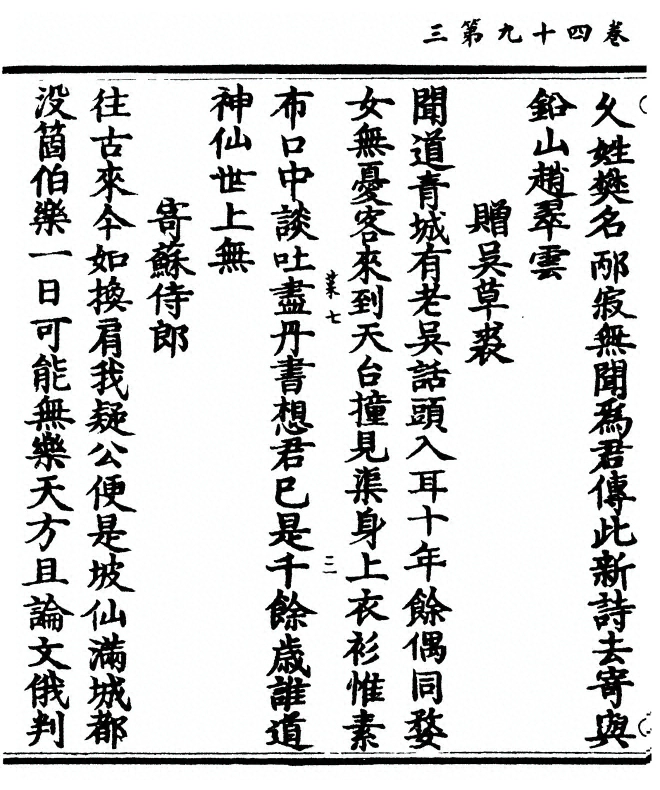 三第九十四卷
夂姓樊名邴寂無聞爲君傳此新詩去寄與
鉛山趙翠雲
贈吳草裘
聞道青城有老吳話頭入耳十年餘偶同婺
女無憂客來到天台撞見渠身上衣衫惟素
布口中談吐盡丹書想君巳是千餘歳誰道
神仙世上無
菜七
三
寄蘇侍郎
往古來今如換肩我疑公便是坡仙滿城都
没箇伯樂一日可能無樂天方且論文俄判